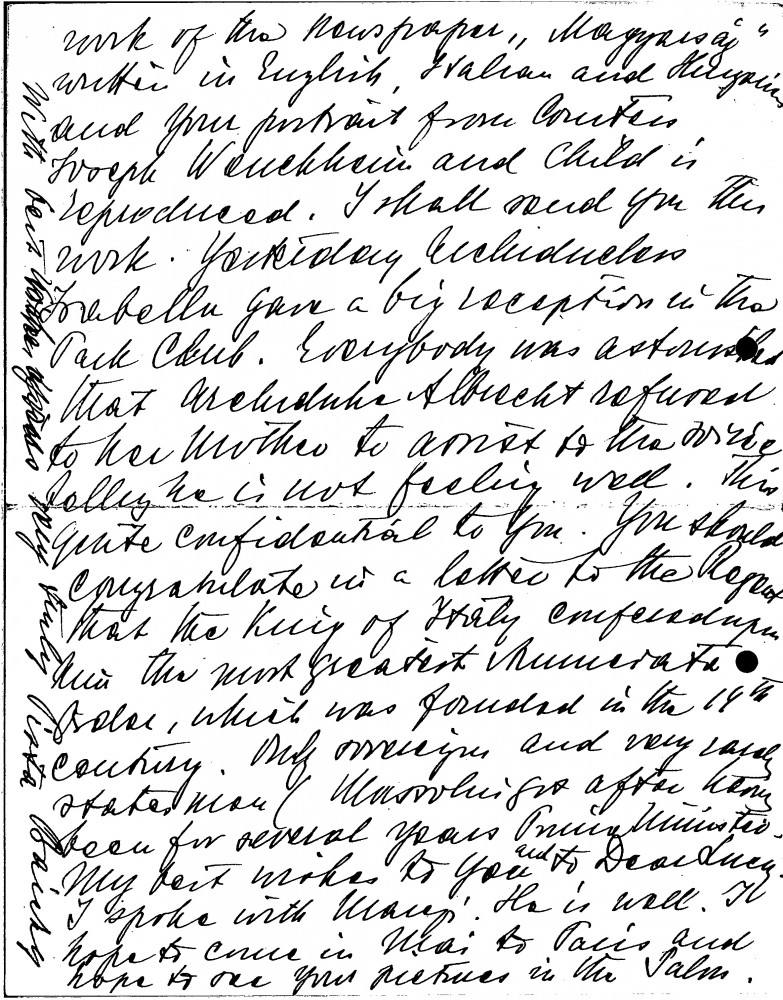 work of the Newspaper „Magyarság"
written in English, Italian and Hungarian
and your portrait from Countess
Joseph Wenckheim and Child is
reproduced. I shall send you this
work. Yesterday Archiduchess
Isabella gave a big reception in the
Park Club. Everybody was astonished
that Archiduke Albrecht refused
to her Mother to assist to the
he is not feeling well. This
quite confidential to You. You should
congratulate in a letter to the Regent
that the King of Italy confered upon
him the most greatest Annunciata
Order, which was founded in the 14th
century. Only sovereigns and very rarely
statesman (Mussolini got after having
been for several years Prime Minister.
My best wishes to You and to Dear Lucy.
I spoke with He is well. I
hope to come in Mai to Paris and
hope to see your pictures in the Salon.
With best yours truly